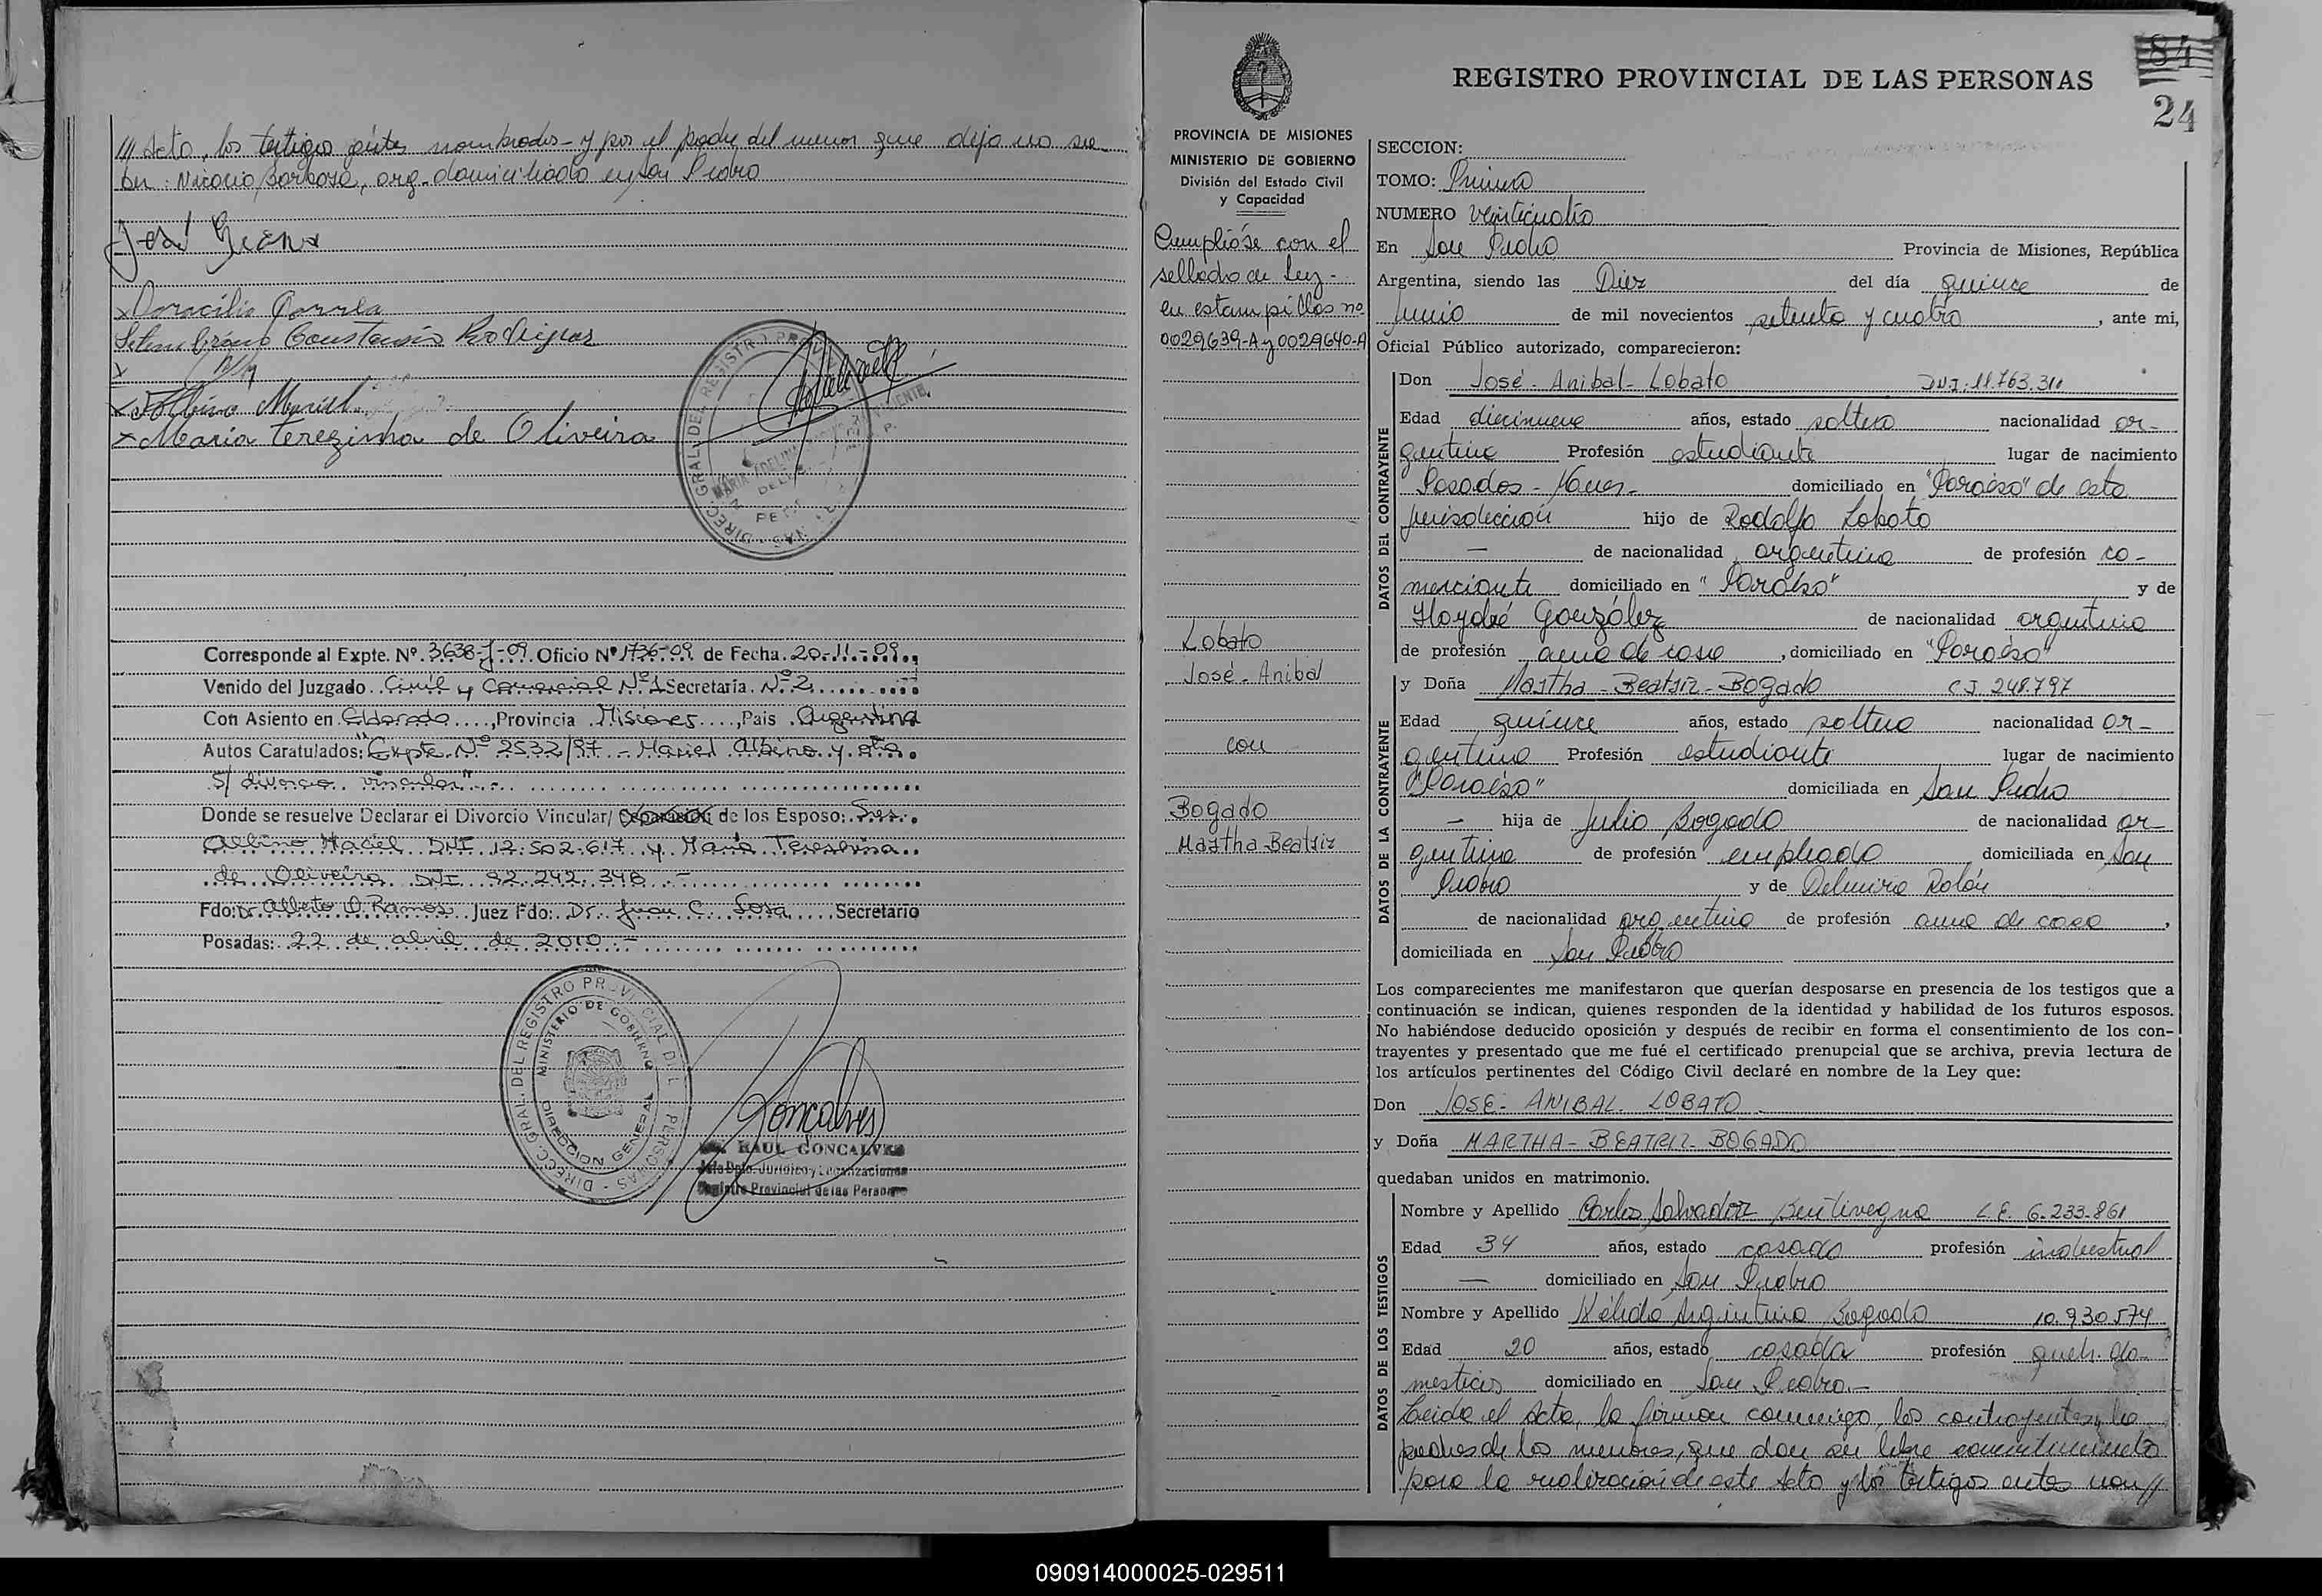 /// Acto, los testigos antes nombrados - y por el padre del menor que dijo no sa-
ber: Nicacio Barboza, arg. domiciliado en San Pedro
José
x Doracilio Correla
Constancio Rodriguez
x
x Albino Maciel
x Maria Terezinha de Oliveira
DIREC. GRAL. DEL REGISTRO PROV
Corresponde al Expte. Nº. 3638-J-09. Oficio Nº 1736-09 de Fecha. 20-11-09.
Venido del Juzgado. Civil y Comercial Nº 1 Secretaria. Nº 2
Con Asiento en Eldorado, Provincia Misiones, Pais Argentina
Autos Caratulados: "Expte. Nº 2532/97 - Maciel Albino y otra
S/ divorcio vincular".-
Donde se resuelve Declarar el Divorcio Vincular/ Separación de los Esposo: Sres.
Albino Maciel DNI 12.502.617 y María Teresinha
de Oliveira DNI 92.242.348 -
Fdo: Dr. Alberto O. Ramos Juez Fdo: Dr. Juan C. Sosa Secretario
Posadas: 22 de abril de 2010 -
DIRECC. GRAL. DEL REGISTRO PROVINCIAL DE L PERSONAS
MINISTERIO DE GOBIERNO
DIRECCION GENERAL
Goncalves
RAUL GONCALVES
Jefe Dpto. Jurídico y Legalizaciones
Registro Provincial de las Personas
84
24
REGISTRO PROVINCIAL DE LAS PERSONAS
PROVINCIA DE MISIONES
MINISTERIO DE GOBIERNO
División del Estado Civil
y Capacidad
Cumplióse con el
sellado de ley -
en estampillas nº
0029639-A y 0029640-A
Lobato
José - Anibal
con
Bogado
Martha Beatriz
SECCION:
TOMO: Primero
NUMERO veinticuatro
En San Pedro Provincia de Misiones, República
Argentina, siendo las Diez del día quince de
Junio de mil novecientos setenta y cuatro, ante mi,
Oficial Público autorizado, comparecieron:
DATOS DEL CONTRAYENTE
Don José - Anibal - Lobato DNI: 11.763.311
Edad diecinueve años, estado soltero nacionalidad ar-
gentino Profesión estudiante lugar de nacimiento
Posadas - Mnes - domiciliado en "Paraíso" de esta
jurisdicción hijo de Rodolfo Lobato
— de nacionalidad argentino de profesión co-
merciante domiciliado en "Paraíso" y de
Haydeé González de nacionalidad argentina
de profesión ama de casa, domiciliado en "Paraíso"
DATOS DE LA CONTRAYENTE
y Doña Martha - Beatriz - Bogado C.I. 248.797
Edad quince años, estado soltera nacionalidad ar-
gentina Profesión estudiante lugar de nacimiento
"Paraíso" domiciliada en San Pedro
— hija de Julio Bogado de nacionalidad ar-
gentino de profesión empleado domiciliada en San
Pedro y de Delmiria Rolón
de nacionalidad argentina de profesión ama de casa,
domiciliada en San Pedro
Los comparecientes me manifestaron que querían desposarse en presencia de los testigos que a
continuación se indican, quienes responden de la identidad y habilidad de los futuros esposos.
No habiéndose deducido oposición y después de recibir en forma el consentimiento de los con-
trayentes y presentado que me fué el certificado prenupcial que se archiva, previa lectura de
los artículos pertinentes del Código Civil declaré en nombre de la Ley que:
Don JOSÉ - ANIBAL - LOBATO
y Doña MARTHA - BEATRIZ - BOGADO
quedaban unidos en matrimonio.
DATOS DE LOS TESTIGOS
Nombre y Apellido Carlos Salvador Bentivegna L.E. 6.233.861
Edad 34 años, estado casado profesión industrial
— domiciliado en San Pedro
Nombre y Apellido Nélida Argentina Bogado 10.930.574
Edad 20 años, estado casada profesión queh. do-
mesticos domiciliado en San Pedro.-
Leída el Acta, la firman conmigo, los contrayentes, los
padres de los menores, que dan su libre consentimiento
para la realización de este Acto y los testigos antes nom//
090914000025-029511